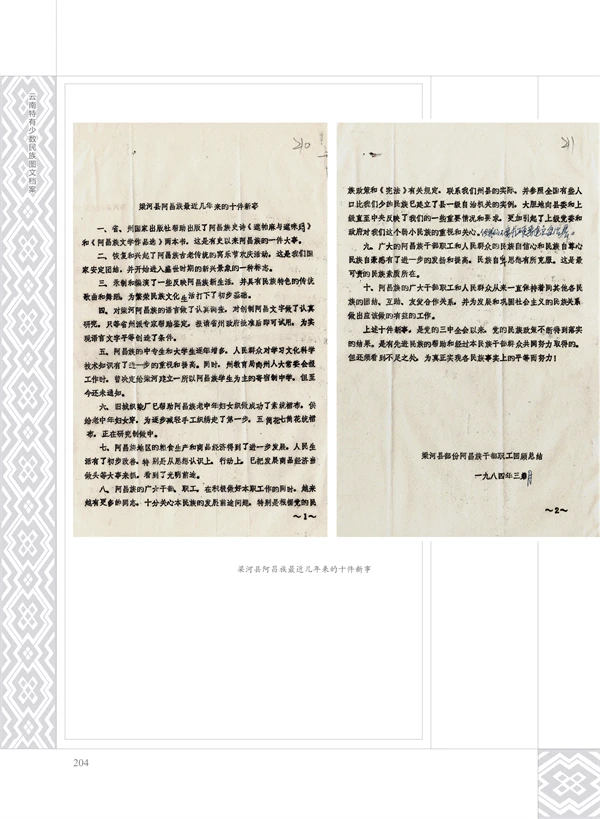 云南特有少数民族图文档案
210
梁河县阿昌族最近几年来的十件新事
一、省、州国家出版社帮助出版了阿昌族史诗《遮帕麻与遮咪玛》
和《阿昌族文学作品选》两本书，这是有史以来阿昌族的一件大事。
二、恢复和兴起了阿昌族古老传统的窝乐节欢庆活动，这是我们国
家安定团结，并开始进入盛世时期的新兴景象的一种标志。
三、录制和编演了一些反映阿昌族新生活，并具有民族特色的传统
歌曲和舞蹈，为繁荣民族文化生活打下了初步基础。
四、对梁河阿昌族的语言做了认真调查，对创制阿昌文字做了认真
研究，只等省州派专家帮助鉴定，报请省州政府批准后即可试用，为实
现语言文字平等创造了条件。
五、阿昌族的中专生和大学生逐年增多，人民群众对学习文化科学
技术知识有了进一步的重视和提高。同时，州教育局向州人大常委会报
工作时，曾决定给梁河建立一所以阿昌族学生为主的寄宿制中学，但至
今还未通知。
六、旧城织染厂已帮助阿昌族老中年妇女织做成功了素统裙布，供
给老中年妇女穿，为逐步减轻手工织绣走了第一步，五简花七简花统裙
布，正在研究制做中。
七、阿昌族地区的粮食生产和商品经济得到了进一步发展，人民生
活有了初步改善，特别是从思想认识上、行动上，已把发展商品经济当
做头等大事来抓，看到了光明前途。
八、阿昌族的广大干部、职工，在积极做好本职工作的同时，越来
越有更多的同志，十分关心本民族的发展前途问题，特别是根据党的民
～1～
211
族政策和《宪法》有关规定，联系我们州县的实际，并参照全国有些人
口比我们少的民族已建立了县一级自治机关的实例，大胆地向县委和上
级直至中央反映了我们的一些重要情况和要求，更加引起了上级党委和
政府对我们这个弱小民族的重视和关心。
九、广大的阿昌族干部职工和人民群众的民族自信心和民族自尊心
民族自豪感有了进一步的发扬和提高，民族自卑思想有所克服。这是最
可贵的民族素质所在。
十、阿昌族的广大干部职工和人民群众从来一直保持着同其他各民
族的团结、互助、友爱合作关系，并为发展和巩固社会主义的民族关系
做出应该做的有益的工作。
上述十件新事，是党的三中全会以来，党的民族政策不断得到落实
的结果。是有先进民族的帮助和经过本民族干部群众共同努力取得的。
但还须看到不足之处，为真正实现各民族事实上的平等而努力！
梁河县部份阿昌族干部职工回顾总结
一九八四年三月
～2～
梁河县阿昌族最近几年来的十件新事
204